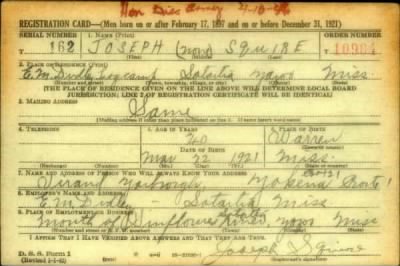 Hon Disc Army 4-10-46
REGISTRATION CARD—(Men born on or after February 17, 1897 and on or before December 31, 1921)
SERIAL NUMBER 1. NAME (Print) ORDER NUMBER
T 162 JOSEPH (none) SQUIRE 10984
(First) (Middle) (Last)
2. PLACE OF RESIDENCE (Print)
E.M. Dudley Log camp Satartia Yazoo Miss.
(Number and street) (Town, township, village, or city) (County) (State)
[THE PLACE OF RESIDENCE GIVEN ON THE LINE ABOVE WILL DETERMINE LOCAL BOARD
JURISDICTION; LINE 2 OF REGISTRATION CERTIFICATE WILL BE IDENTICAL]
3. MAILING ADDRESS
Same
(Mailing address if other than place indicated on line 2. If same insert word same)
4. TELEPHONE 5. AGE IN YEARS 6. PLACE OF BIRTH
20 Warren
DATE OF BIRTH (Town or county)
Mar 22 1921 Miss.
(Exchange) (Number) (Mo.) (Day) (Yr.) (State or country)
7. NAME AND ADDRESS OF PERSON WHO WILL ALWAYS KNOW YOUR ADDRESS
Yokena
8. EMPLOYER'S NAME AND ADDRESS
E.M. Dudley Satartia Miss
9. PLACE OF EMPLOYMENT OR BUSINESS
Mouth of Sunflower River, Yazoo Miss
(Number and street or R. F. D. number) (Town) (County) (State)
I AFFIRM THAT I HAVE VERIFIED ABOVE ANSWERS AND THAT THEY ARE TRUE.
D. S. S. Form 1
Joseph Squire